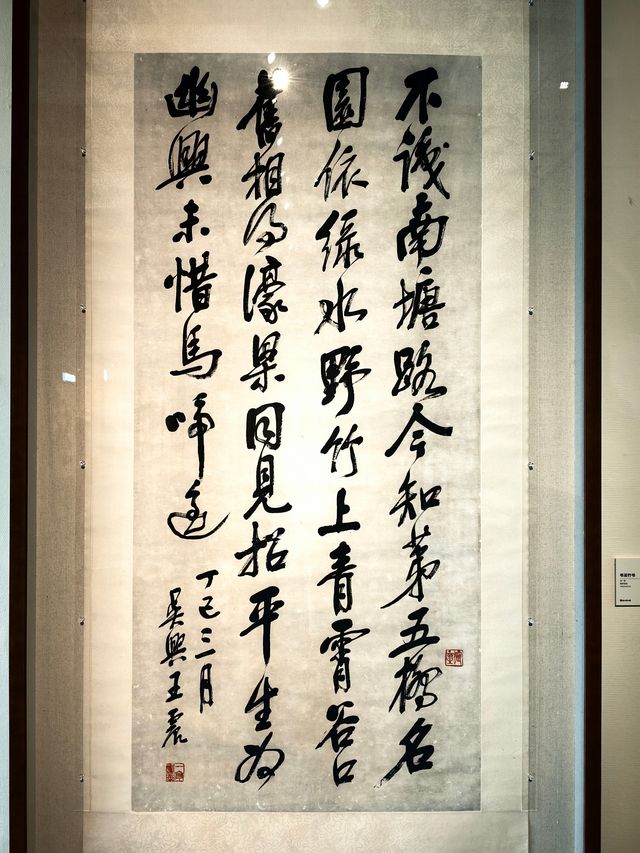 不識南塘路今知第五橋名
園依綠水野竹上青霄谷口
舊相得濠梁同見招平生為
幽興未惜馬啼遙
丁巳三月
吳興王震